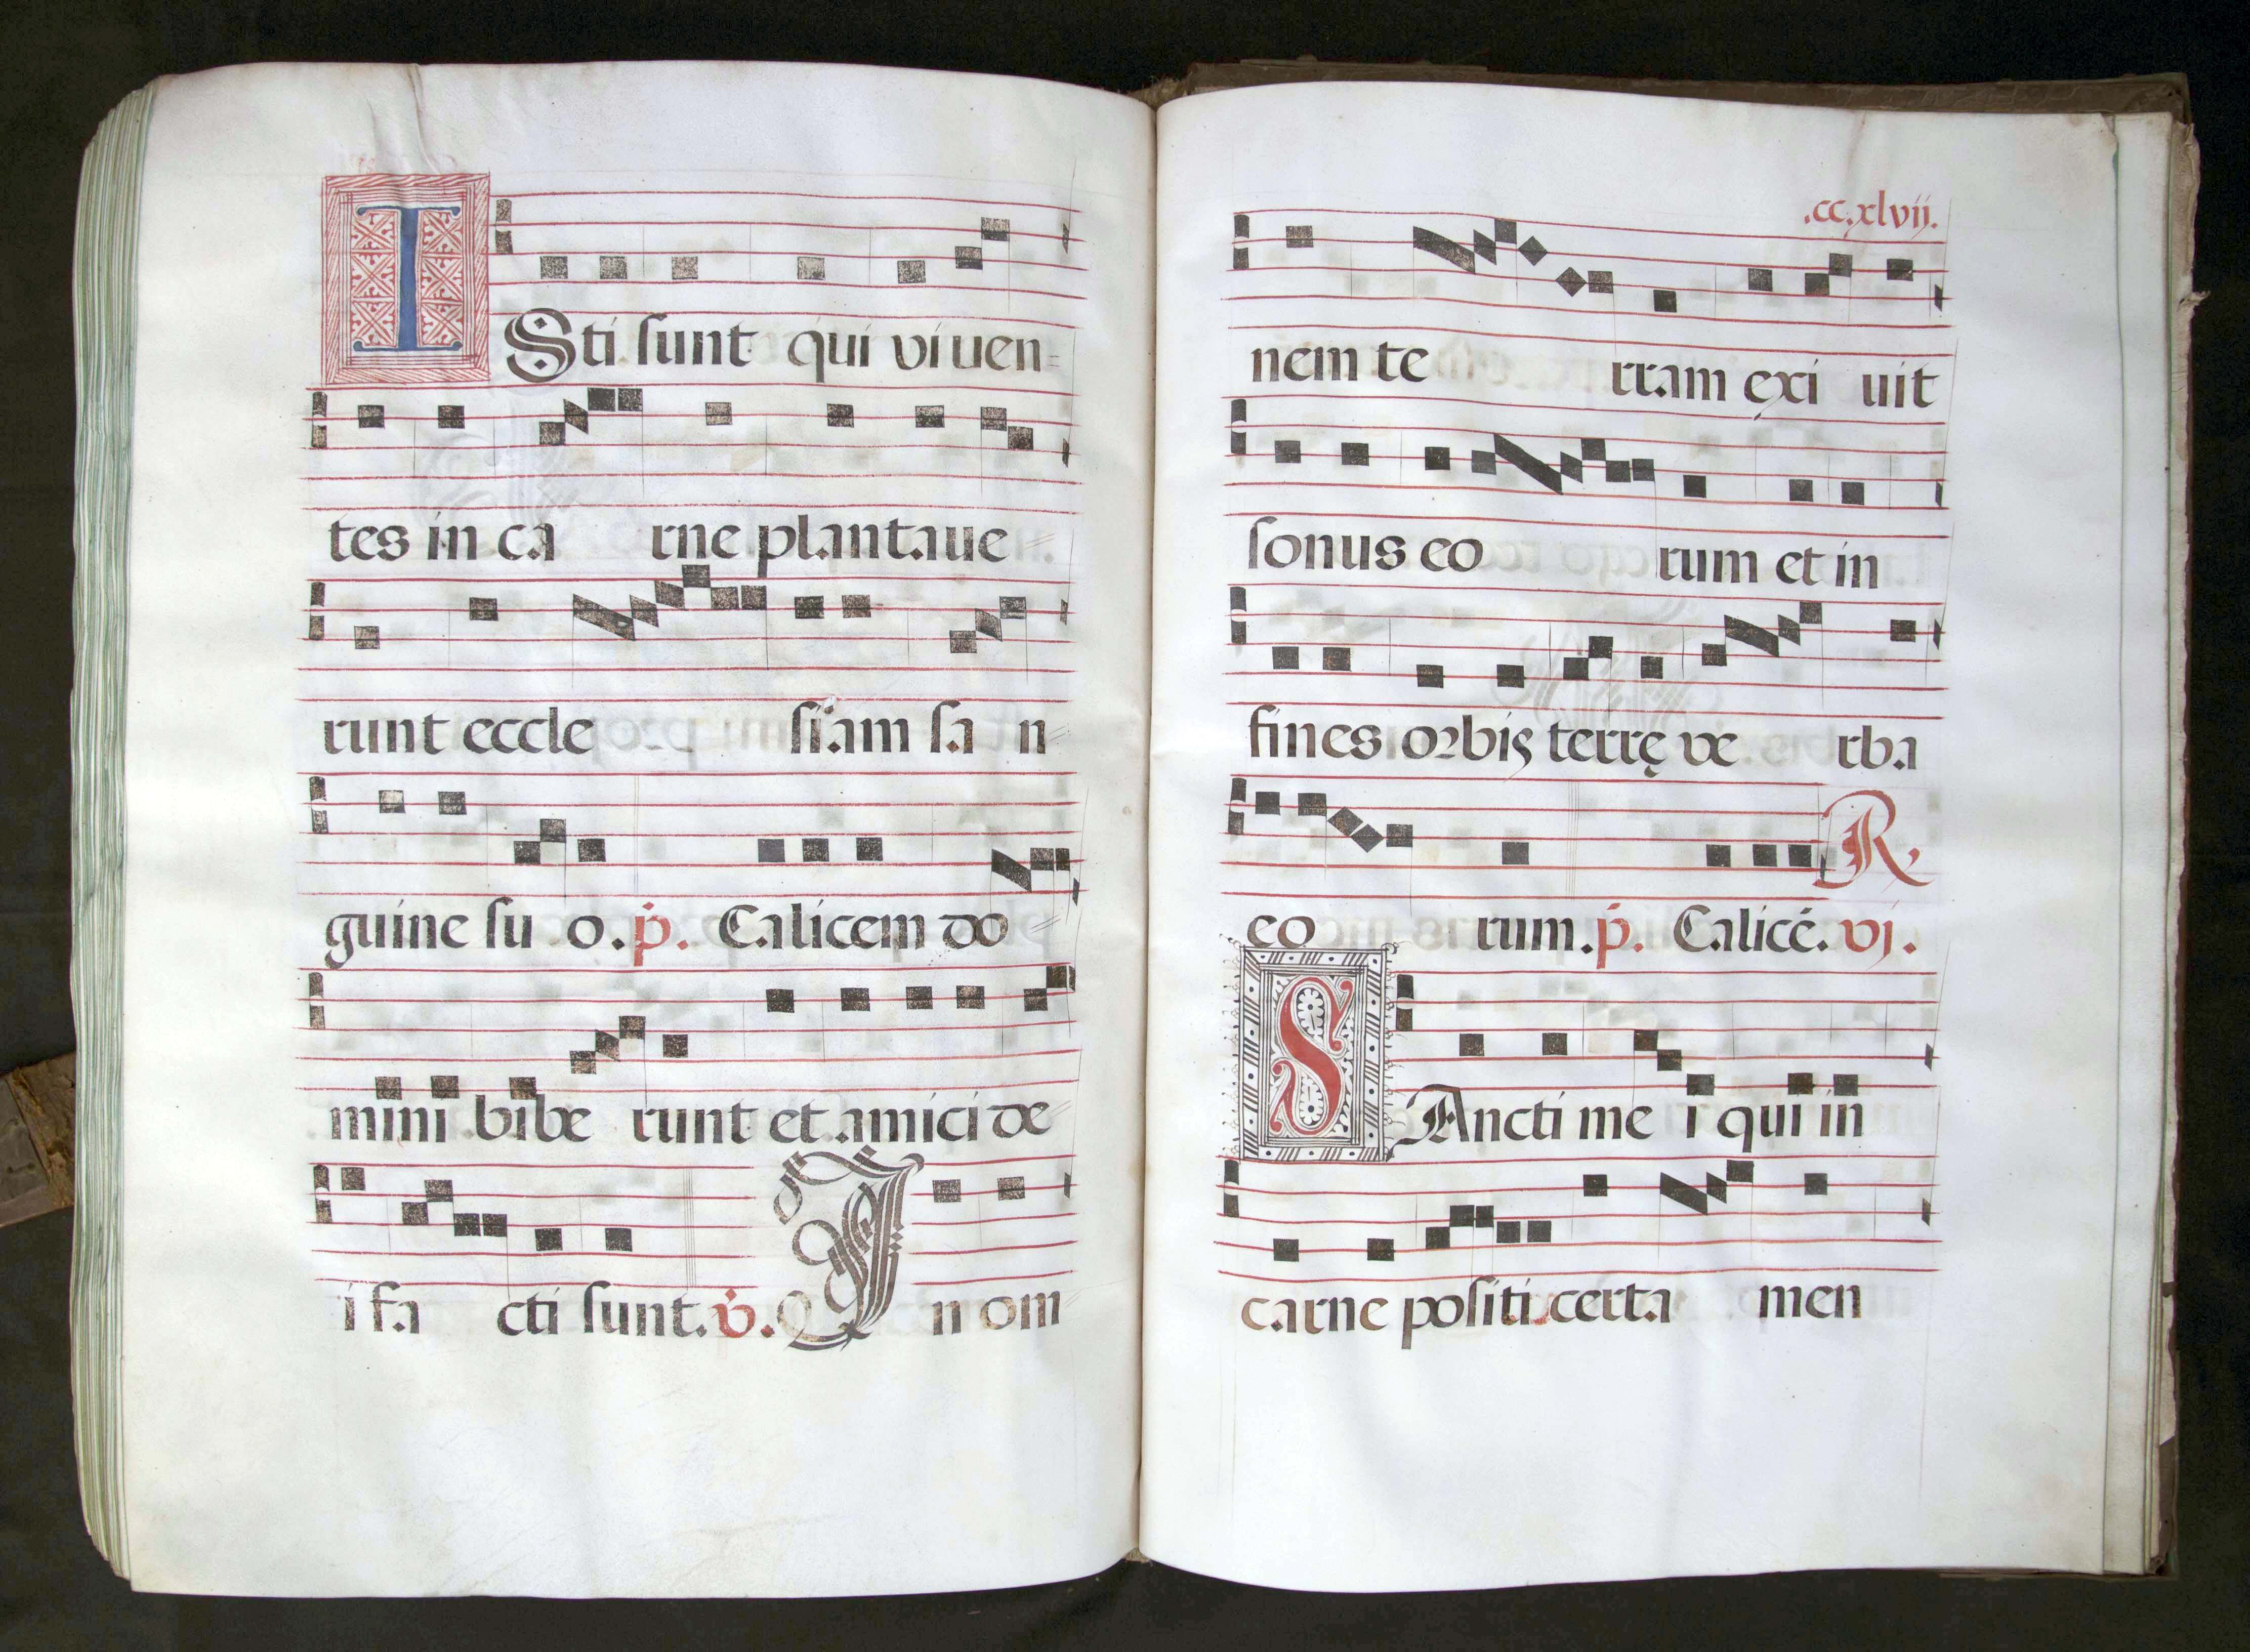 ISti sunt qui viuen=
tes in ca rne plantaue=
runt eccle siam sa n=
guine su o. p. Calicem do=
mini bibe runt et amici de=
i fa cti sunt. v. I n om
.cc.xlvij.
nem te rram exi uit
sonus eo rum et in
fines orbis terrę ve rba
R.
eo rum. p. Calicē. vj.
SAncti me i qui in
carne positi certa men